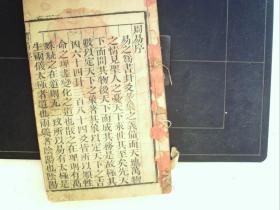 周易序
易之為書卦爻彖象之義備而天地萬物
之情見聖人之憂天下來世其至矣先天
下而開其物後天下而成其務是故極其
數以定天下之象著其象以定天下之吉
凶六十四卦三百八十四爻皆所以順性
命之理盡變化之道也散之在理則有萬
殊統之在道則无二致所以易有太極是
生兩儀太極者道也兩儀者陰陽也陰陽